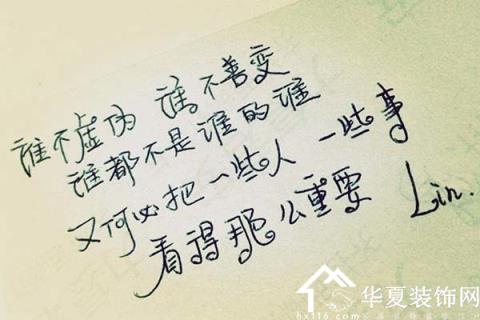 谁不虚伪 谁不善变
谁都不是谁的谁
又何必把一些人 一些事
看得那么重要 Lin.
华夏装饰网
hx116.com